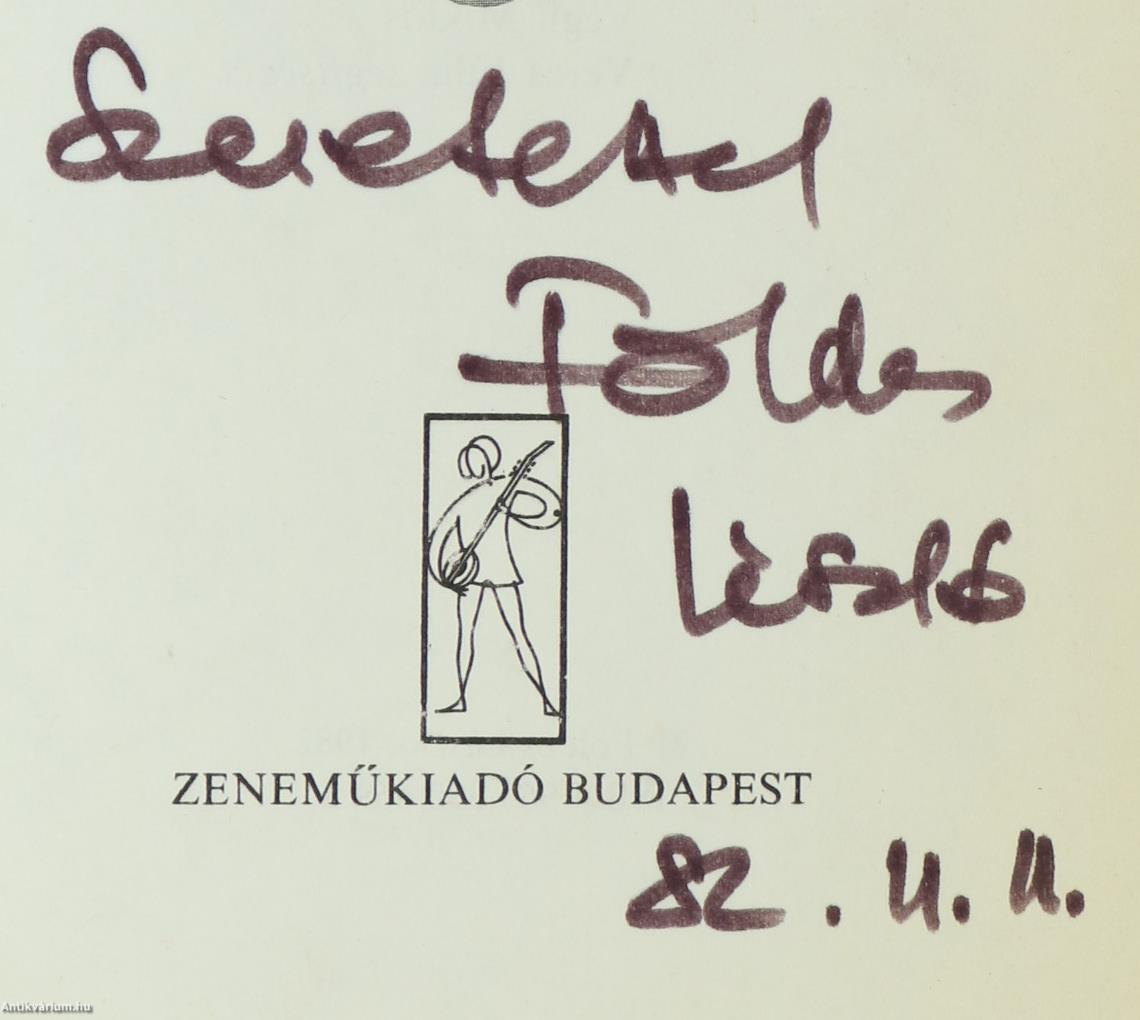 Szeretettel
Földes
László
ZENEMŰKIADÓ BUDAPEST
82. 11. 11.
Antikvárium.hu